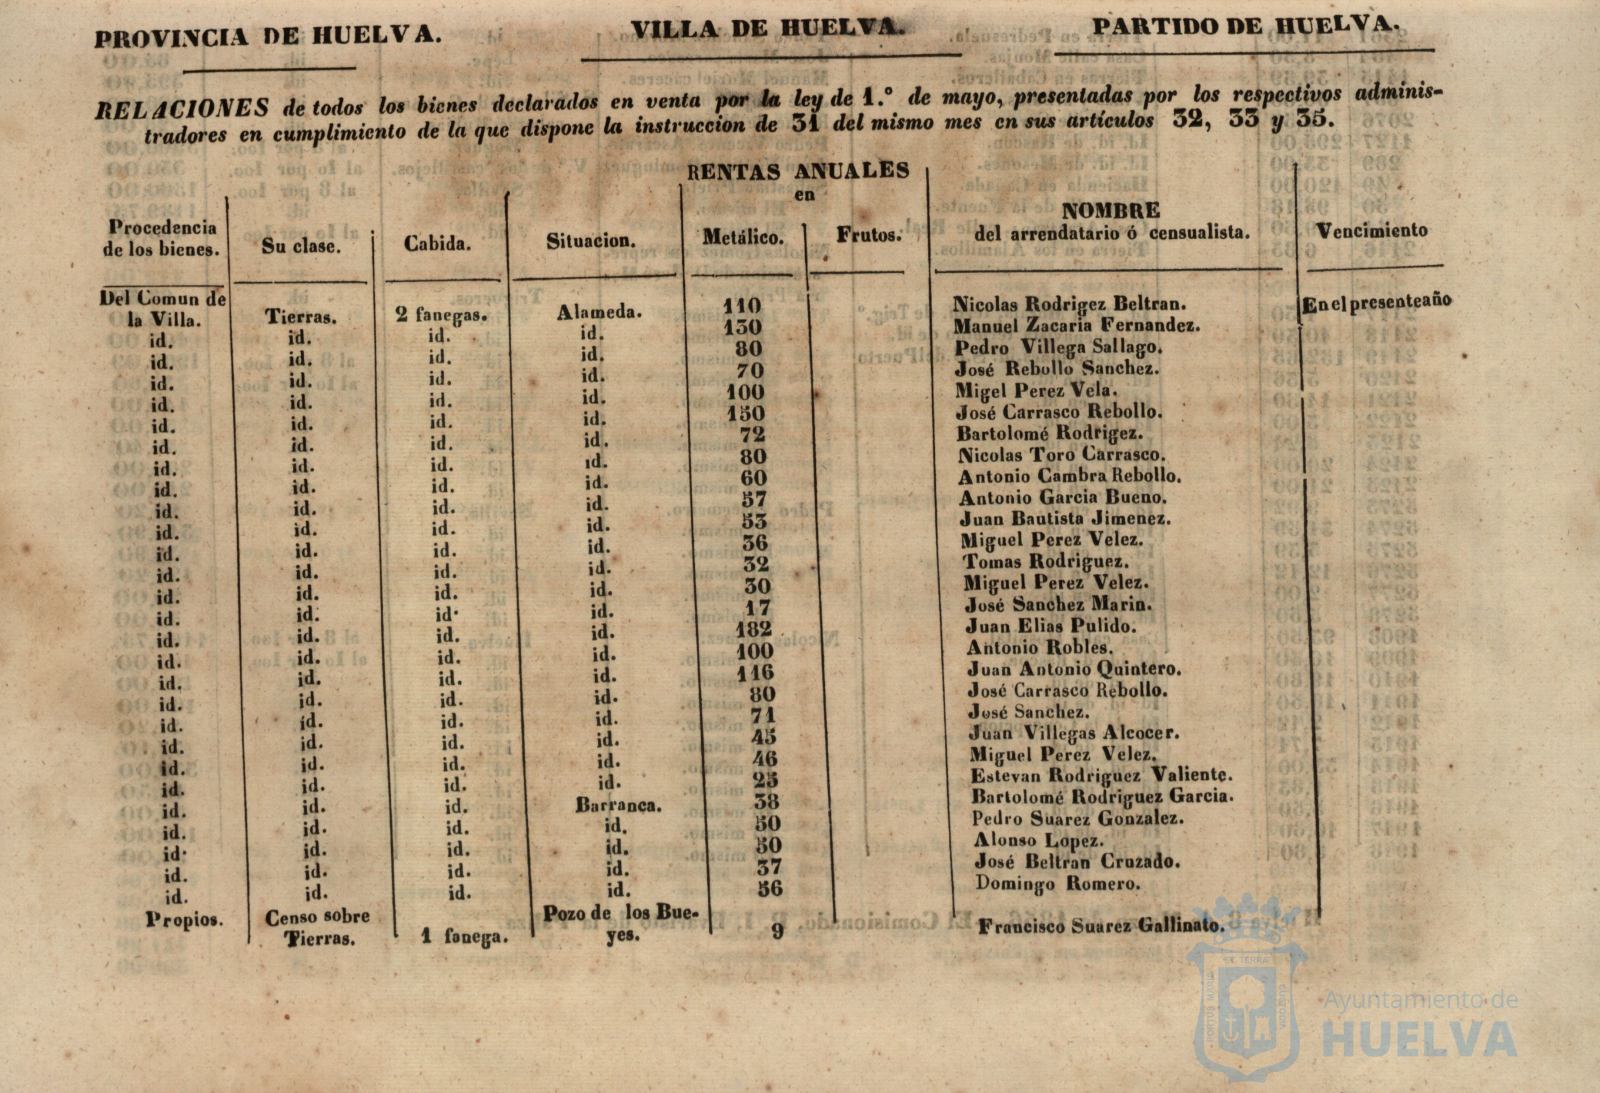 PROVINCIA DE HUELVA. VILLA DE HUELVA. PARTIDO DE HUELVA.
RELACIONES de todos los bienes declarados en venta por la ley de 1.° de mayo, presentadas por los respectivos adminis-
tradores en cumplimiento de la que dispone la instruccion de 31 del mismo mes en sus artículos 32, 33 y 35.
RENTAS ANUALES
en
Procedencia
de los bienes. Su clase. Cabida. Situacion. Metálico. Frutos. NOMBRE
del arrendatario ó censualista. Vencimiento
Del Comun de
la Villa. Tierras. 2 fanegas. Alameda. 110 Nicolas Rodrigez Beltran. En el presente año
id. id. id. id. 130 Manuel Zacaria Fernandez.
id. id. id. id. 80 Pedro Villega Sallago.
id. id. id. id. 70 José Rebollo Sanchez.
id. id. id. id. 100 Migel Perez Vela.
id. id. id. id. 150 José Carrasco Rebollo.
id. id. id. id. 72 Bartolomé Rodrigez.
id. id. id. id. 80 Nicolas Toro Carrasco.
id. id. id. id. 60 Antonio Cambra Rebollo.
id. id. id. id. 57 Antonio Garcia Bueno.
id. id. id. id. 53 Juan Bautista Jimenez.
id. id. id. id. 36 Miguel Perez Velez.
id. id. id. id. 32 Tomas Rodriguez.
id. id. id. id. 30 Miguel Perez Velez.
id. id. id. id. 17 José Sanchez Marin.
id. id. id. id. 182 Juan Elias Pulido.
id. id. id. id. 100 Antonio Robles.
id. id. id. id. 116 Juan Antonio Quintero.
id. id. id. id. 80 José Carrasco Rebollo.
id. id. id. id. 71 José Sanchez.
id. id. id. id. 45 Juan Villegas Alcocer.
id. id. id. id. 46 Miguel Perez Velez.
id. id. id. id. 25 Estevan Rodriguez Valiente.
id. id. id. Barranca. 38 Bartolomé Rodriguez Garcia.
id. id. id. id. 50 Pedro Suarez Gonzalez.
id. id. id. id. 50 Alonso Lopez.
id. id. id. id. 37 José Beltran Cruzado.
id. id. id. id. 56 Domingo Romero.
Propios. Censo sobre
Tierras. 1 fanega. Pozo de los Bue-
yes. 9 Francisco Suarez Gallinato.
Ayuntamiento de
HUELVA